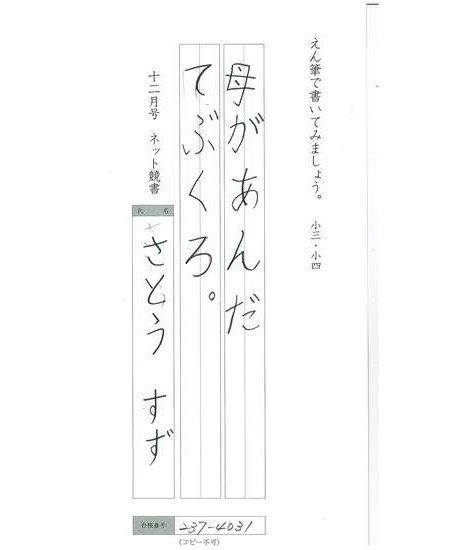 えん筆で書いてみましょう。 小三・小四
母があんだ
てぶくろ。
十二月号 ネット競書
氏名
さとう すず
台帳番号
237-4031
(コピー不可)